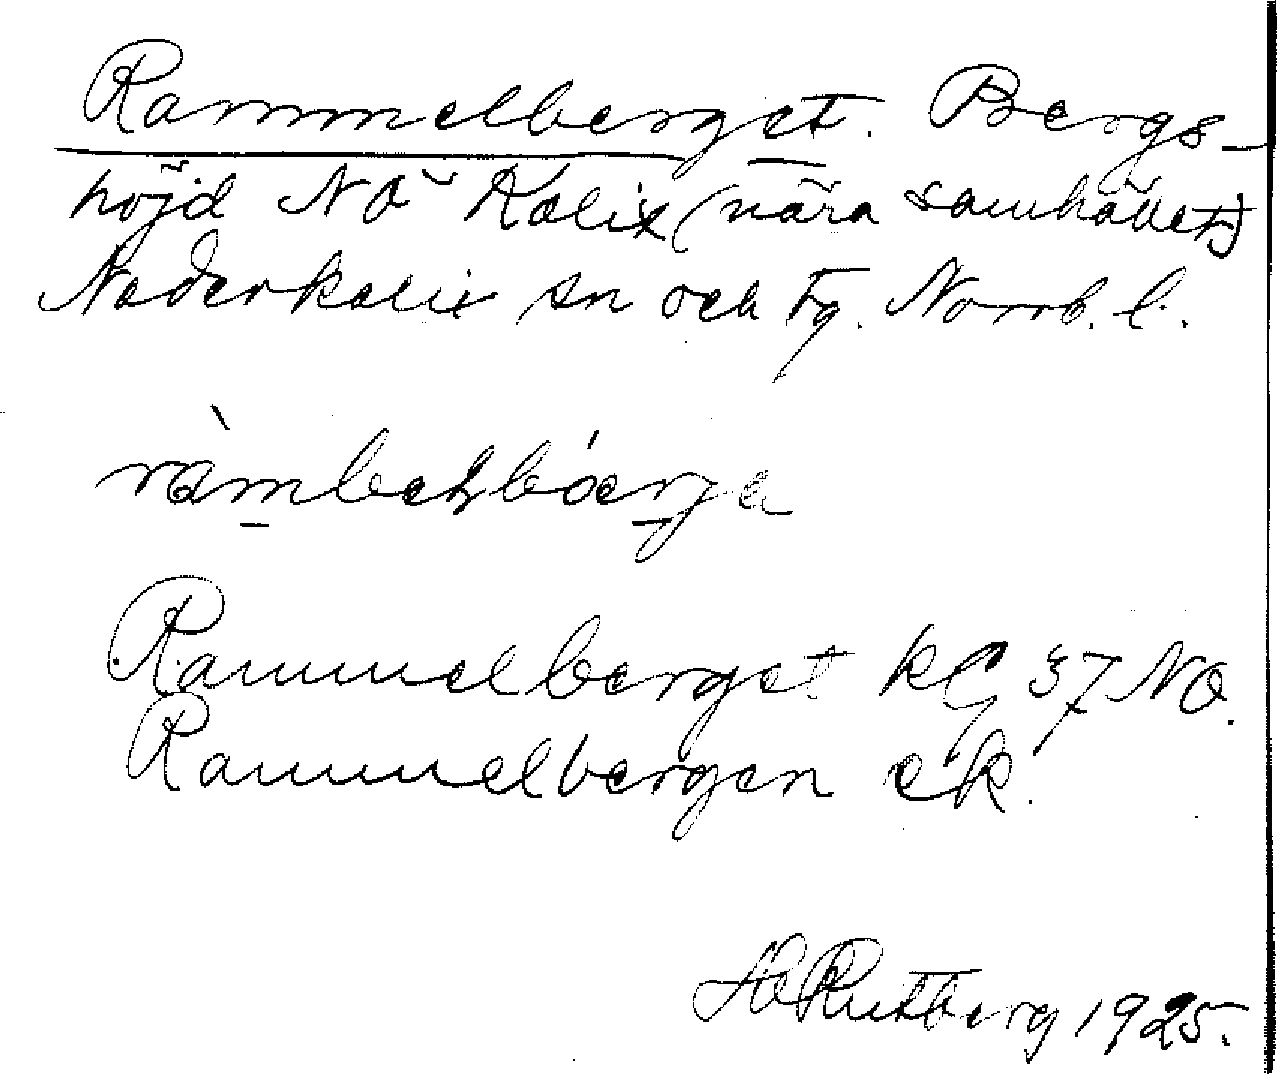 Rammelberget. Bergs-
höjd NO Kalix (nära samhället)
Nederkalix sn och tg. Norrb. l.
Rammelberget kG 37 NO.
Rammelbergen ek.
H Rutberg 1925.